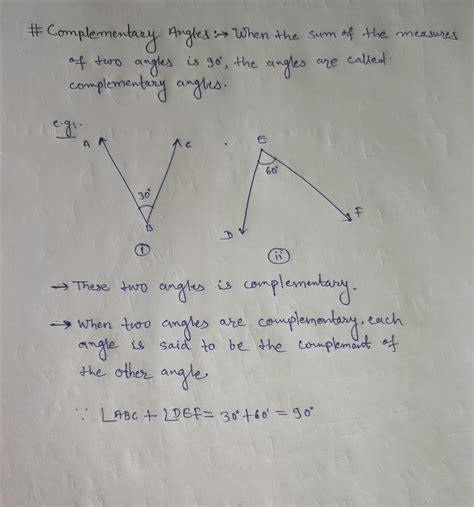 # Complementary Angles:→ When the sum of the measures
of two angles is 90°, the angles are called
complementary angles.
e.g:-
A C
30°
B
i
E
60°
D F
ii
→ These two angles is complementary.
→ When two angles are complementary, each
angle is said to be the complement of
the other angle.
∵ ∠ABC + ∠DEF = 30° + 60° = 90°